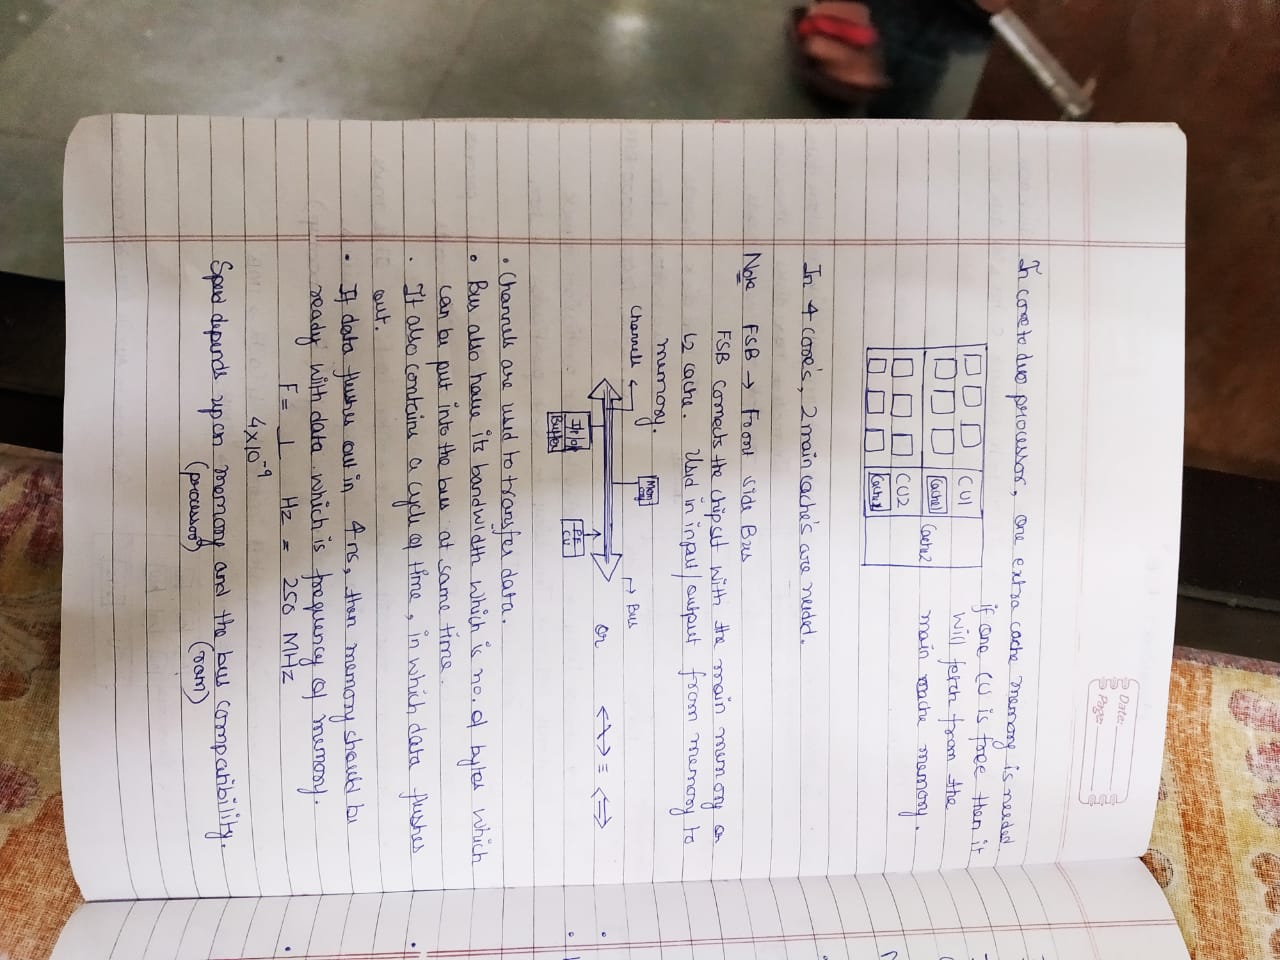 Date:
Page:
In core to duo processor, one extra cache memory is needed
CU1
Cache1
CU2
Cache2
Cache2
if one CU is free then it
will fetch from the
main cache memory.
In 4 core's, 2 main cache's are needed.
Note FSB → Front side Bus
FSB connects the chipset with the main memory or
L2 cache. Used in input/output from memory to
memory.
Channels
Bus
Mem
ory
I/p/op
Buffer
CU
or
≡
• Channels are used to transfer data.
• Bus also have its bandwidth which is no. of bytes which
can be put into the bus at same time.
• It also contains a cycle of time, in which data flushes
out.
• If data flushes out in 4 ns, then memory should be
ready with data. which is frequency of memory.
F = 1 Hz = 250 MHz
4×10⁻⁹
Speed depends upon memory and the bus compatibility.
(processor) (ram)